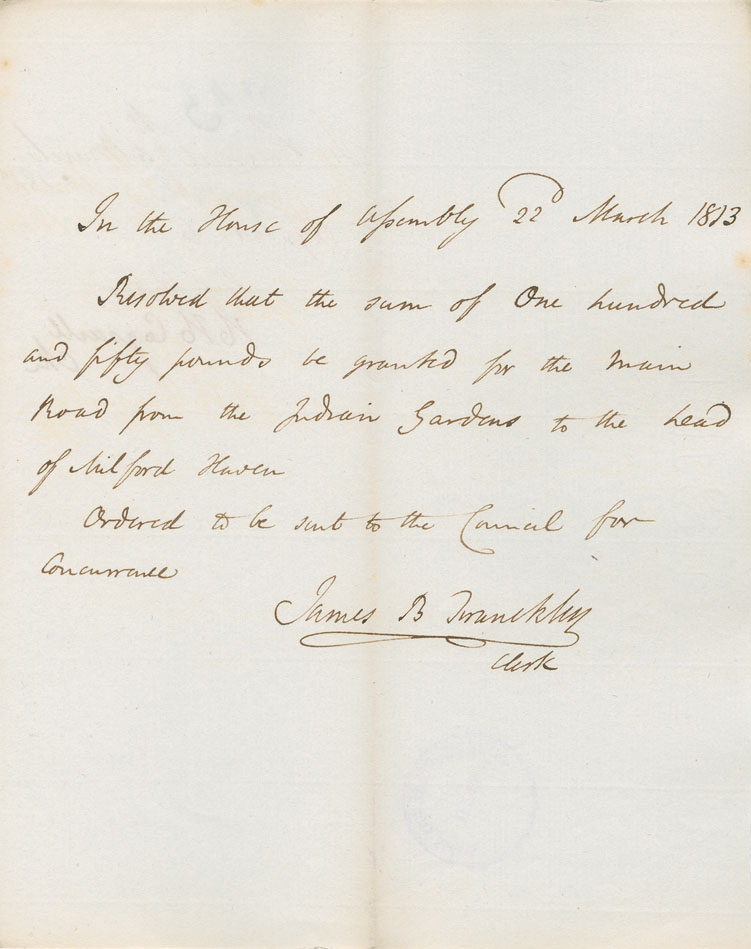 In the House of Assembly 22d March 1813
Resolved that the sum of One hundred
and fifty pounds be granted for the Main
Road from the Indian Gardens to the head
of Milford Haven
Ordered to be sent to the Council for
Concurrence
James B Franckley
Clerk